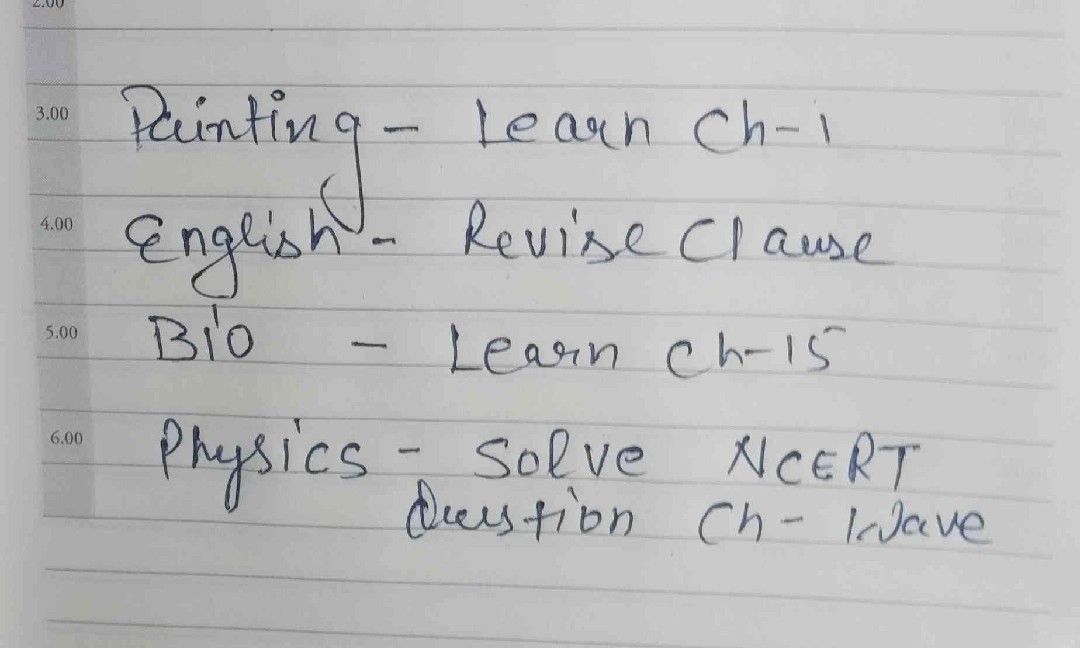 2.00
3.00 Painting - Learn Ch-1
4.00 English - Revise Clause
5.00 Bio - Learn Ch-15
6.00 Physics - Solve NCERT
Question Ch - Wave